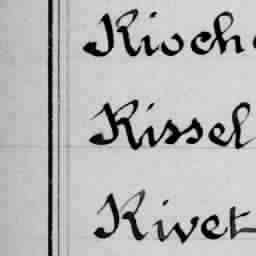 Kioch
Kissel
Kivet